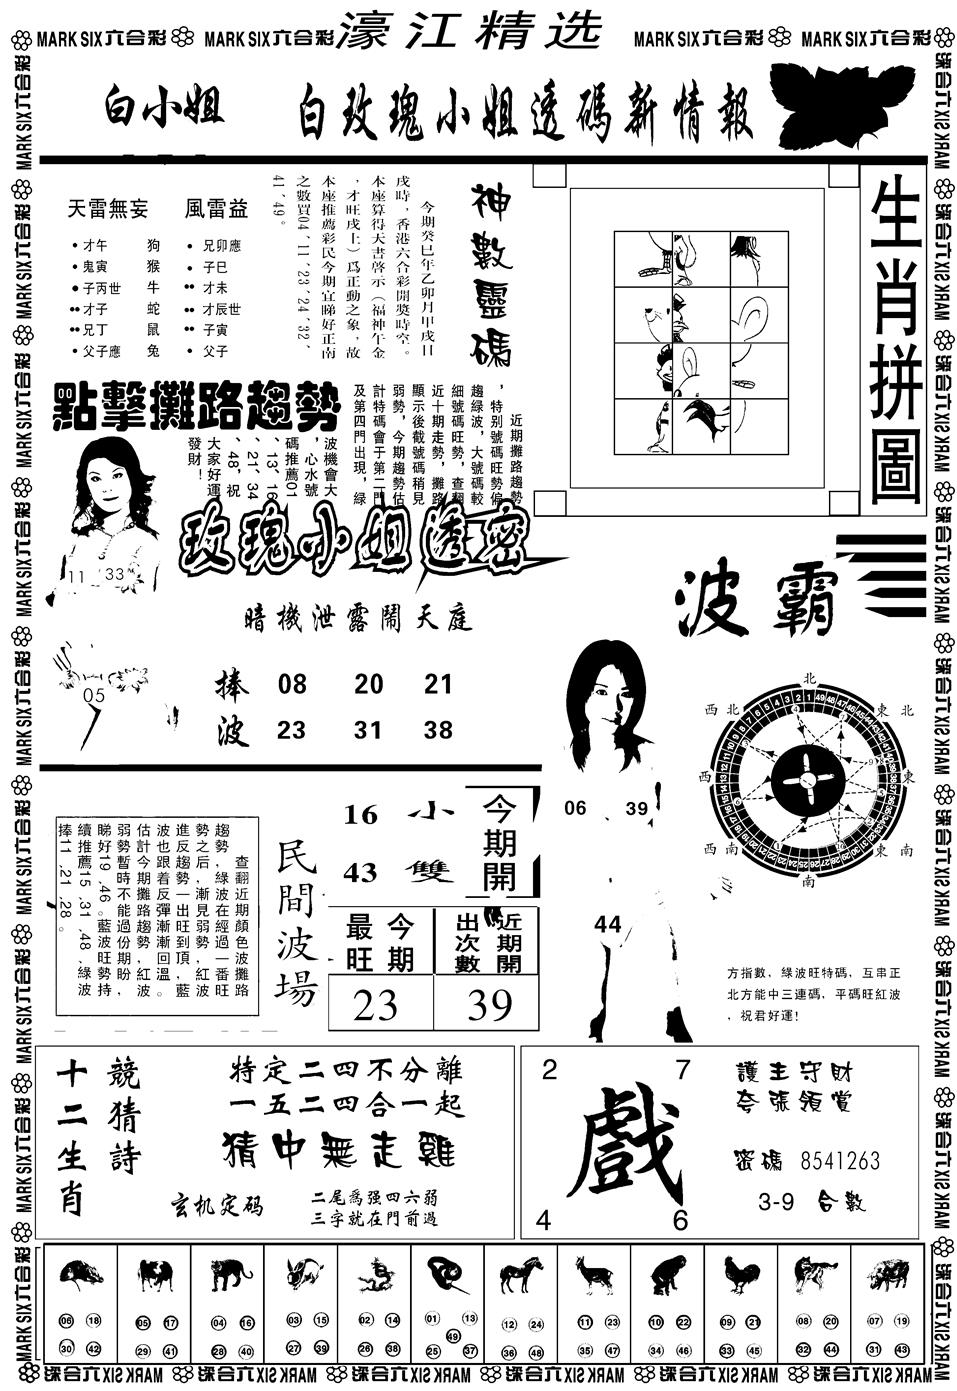 MARK SIX六合彩 MARK SIX六合彩 濠江精选 MARK SIX六合彩 MARK SIX六合彩
白小姐 白玫瑰小姐透碼新情報
天雷無妄 風雷益
才午 狗 兄卯應
鬼寅 猴 子巳
子丙世 牛 才未
才子 蛇 才辰世
兄丁 鼠 子寅
父子應 兔 父子
神數靈碼
今期癸巳年乙卯月甲戌日
戌時，香港六合彩開獎時空。
本座算得天書啓示（福神午金
，才旺戌上）爲正動之象，故
本座推薦彩民今期宜睇好正南
之數買04、11、23、24、32、
41、49。
生肖拼圖
點擊攤路趨勢
近期攤路趨勢
，特别號碼旺勢偏
趨綠波，大號碼較
細號碼旺勢，查翻
近十期走勢，攤路
顯示後截號碼稍見
弱勢，今期趨勢估
計特碼會于第二門
及第四門出現，綠
波機會大
，心水號
碼推薦01
、13、16
、21、34
、48，祝
大家好運
發財！
11 33
05
玫瑰小姐透密
暗機泄露鬧天庭
捧 08 20 21
波 23 31 38
波霸
北
西北 東北
西 東
西南 東南
南
06 39
44
方指數，綠波旺特碼，互串正
北方能中三連碼，平碼旺紅波
，祝君好運！
查翻近期顏色波攤路
趨勢，綠波在經過一番旺
勢之后，漸見弱勢，紅波
進反趨勢一出旺到頂，藍
波也跟着反彈漸漸回溫。
估計今期攤路趨勢，紅波
弱勢暫時不能過份期盼，
睇好19、46。藍波旺勢持
續推薦15、31、48，綠波
捧11、21、28。
民間波場
16 小
43 雙
今期開
今期最旺 近期開出次數
23 39
十二生肖
競猜詩
特定二四不分離
一五二四合一起
猜中無走雞
玄机定码
二尾爲强四六弱
三字就在門前過
2 7
戲
4 6
護主守財
夸張領賞
密碼 8541263
3-9 合數
06 18 05 17 04 16 03 15 02 14 01 13 12 24 11 23 10 22 09 21 08 20 07 19
49
30 42 29 41 28 40 27 39 26 38 25 37 36 48 35 47 34 46 33 45 32 44 31 43
MARK SIX六合彩 MARK SIX六合彩 MARK SIX六合彩 MARK SIX六合彩 MARK SIX六合彩